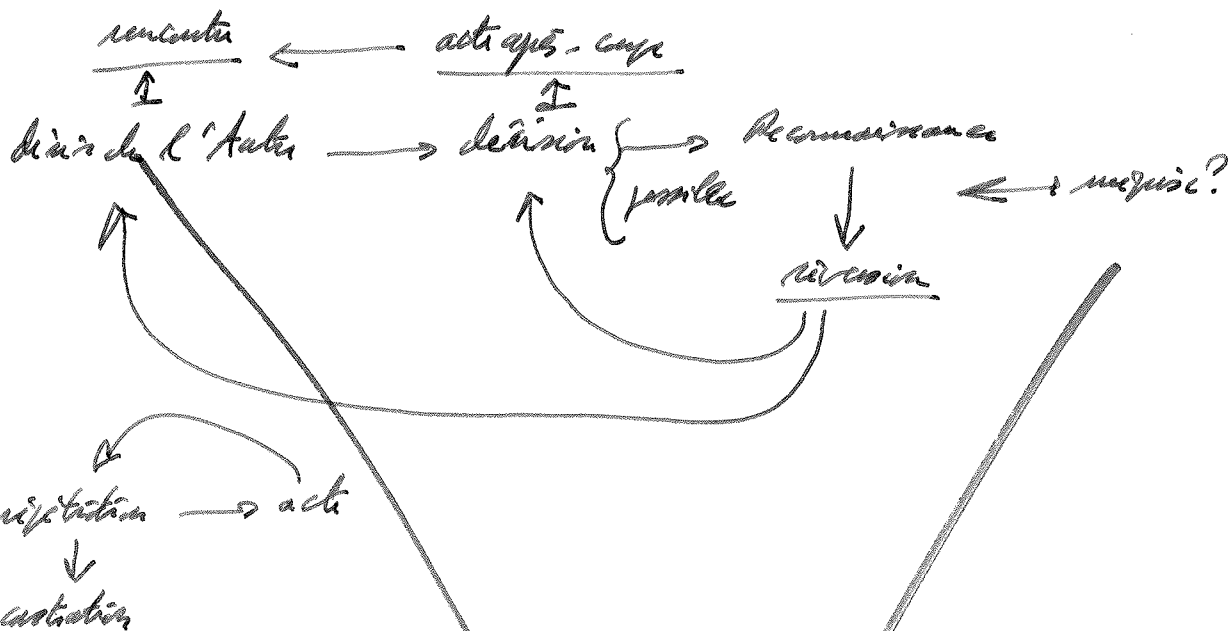 rencontre acte après-coup
désir de l'Autre décision Reconnaissance
possible méprise?
réversion
répétition acte
castration